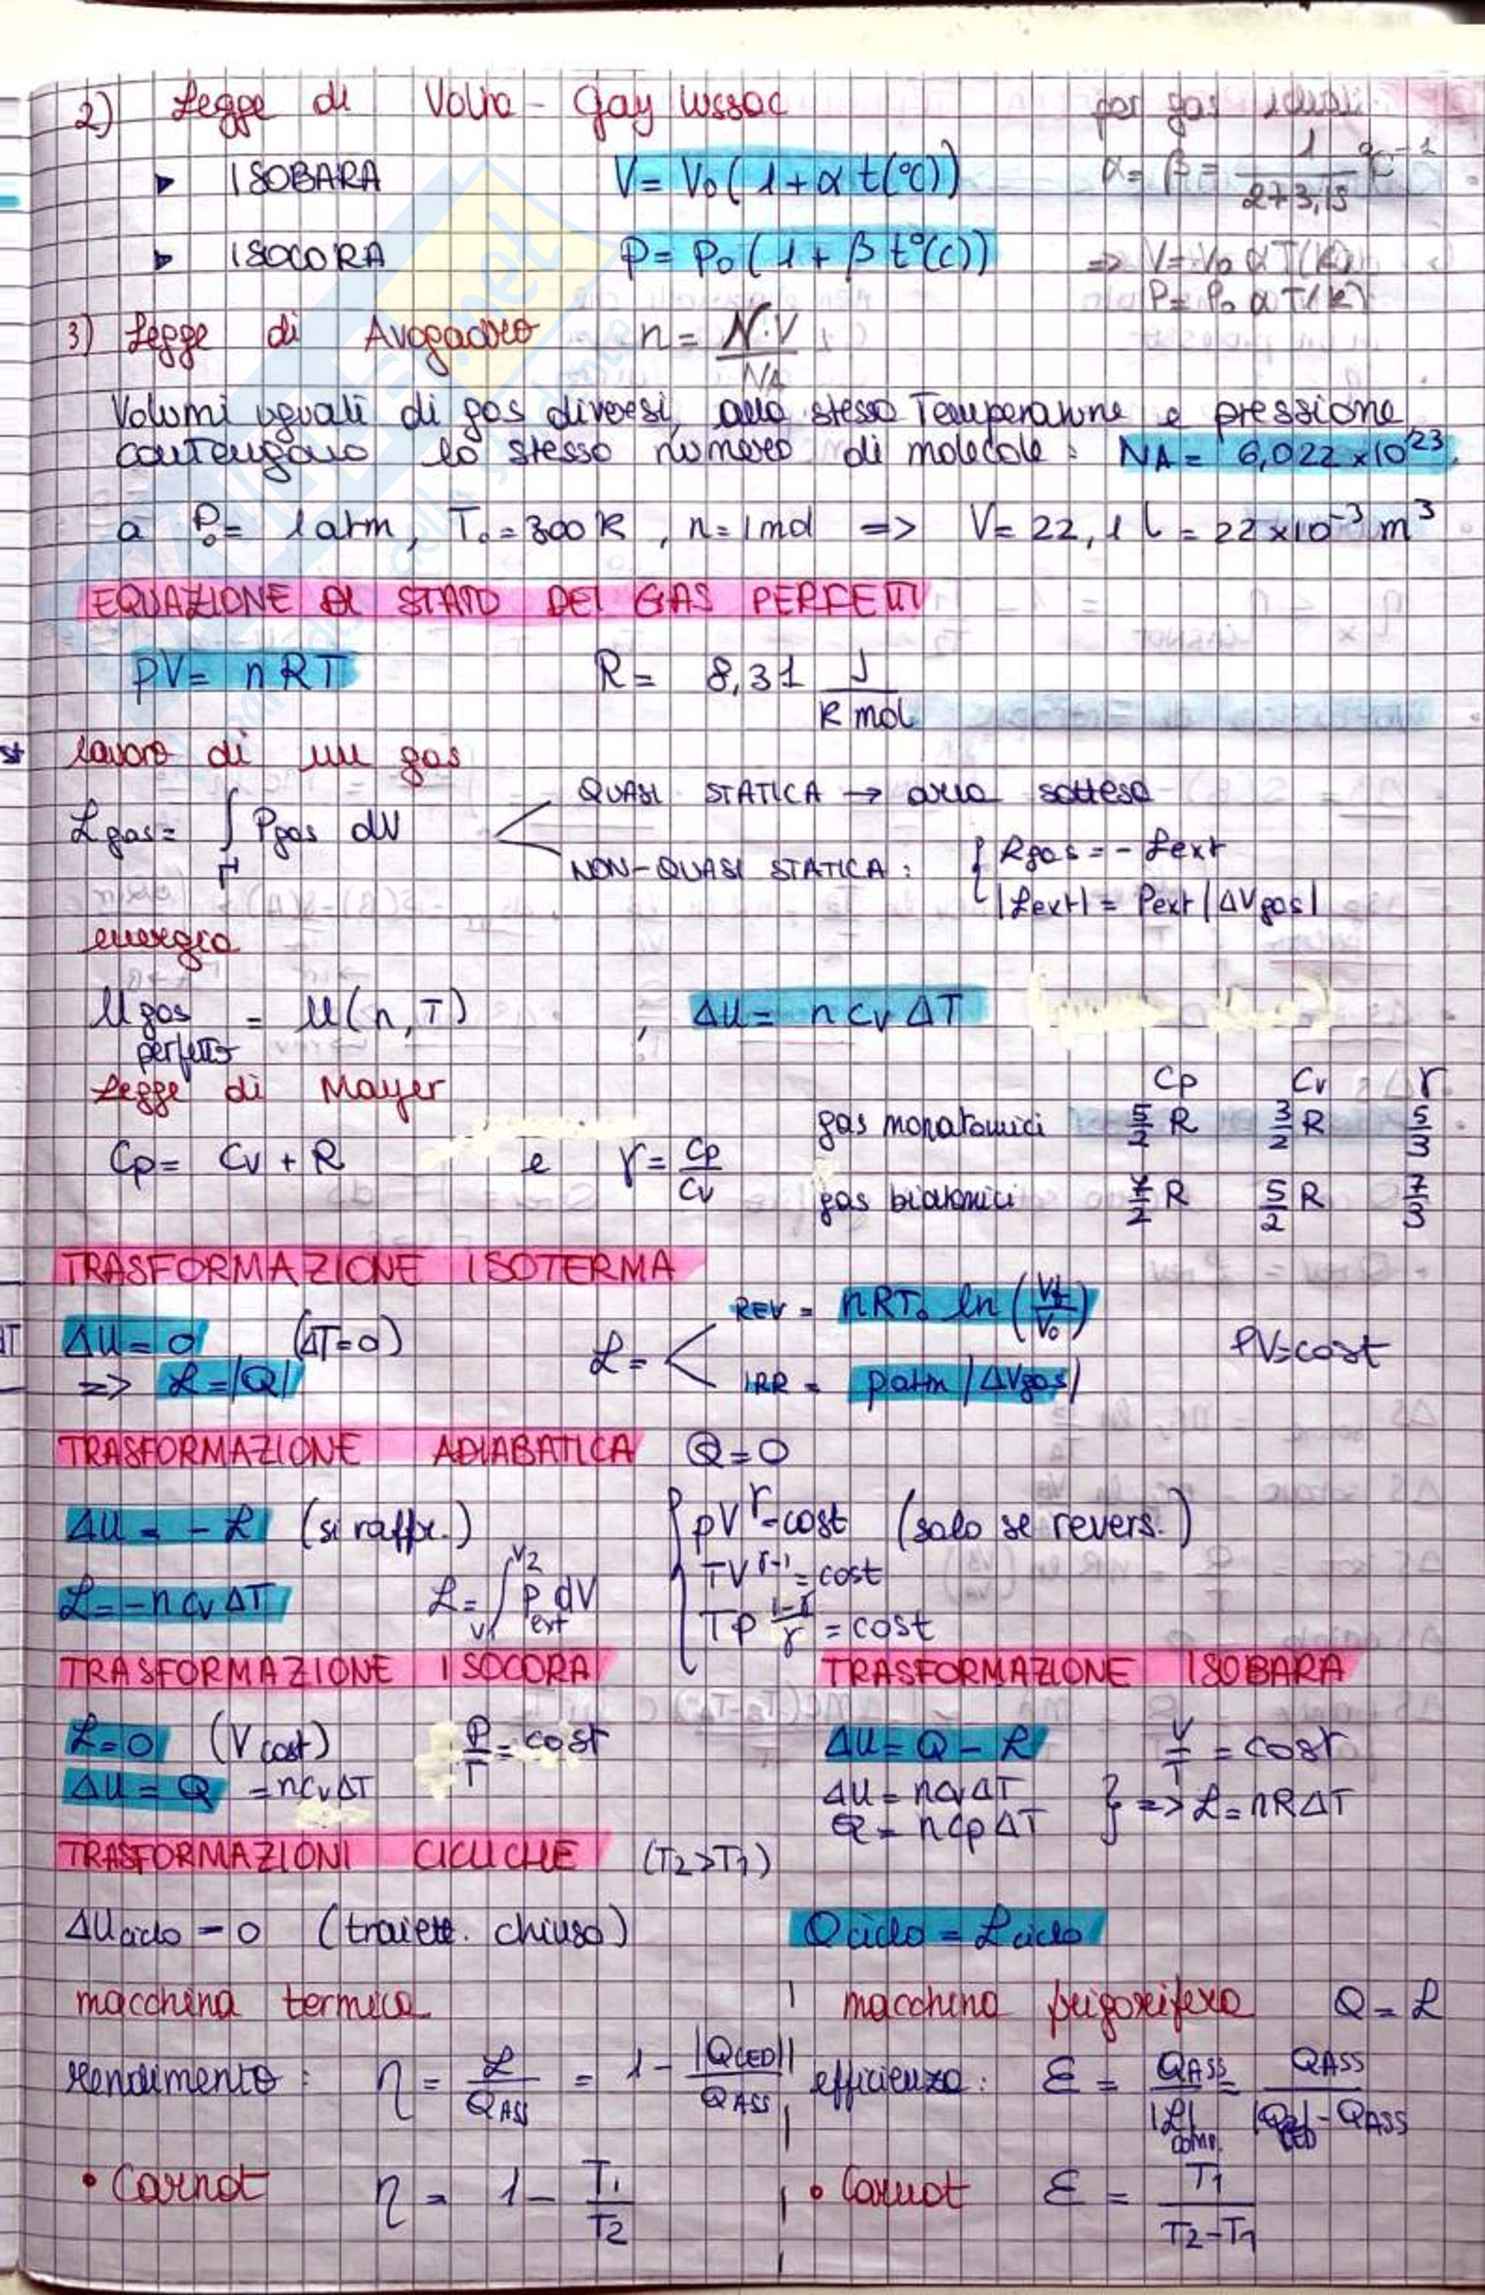 2) Legge di Volta - Gay Lussac per gas ideali
▸ ISOBARA V = V₀(1+α t(°C)) α = β = 1/273,15 °C⁻¹
▸ ISOCORA P = P₀(1+β t°(C)) => V = V₀ α T(K)
P = P₀ α T(K)
3) Legge di Avogadro n = N·V/NA
Volumi uguali di gas diversi, alla stessa Temperatura e pressione
contengono lo stesso numero di molecole: NA = 6,022×10²³
a P₀ = 1atm, T₀ = 300K, n = 1mol => V = 22,1 l = 22×10⁻³ m³
EQUAZIONE DI STATO DEI GAS PERFETTI
pV = nRT R = 8,31 J/K mol
lavoro di un gas
QUASI STATICA → area sottesa
ℒgas = ∫Γ Pgas dV
NON-QUASI STATICA: { ℒgas = - ℒext
|ℒext| = Pext |ΔVgas|
energia
Ugas perfetto = U(n,T), ΔU = n cv ΔT
Legge di Mayer Cp Cv γ
gas monatomici 5/2 R 3/2 R 5/3
Cp = Cv + R e γ = Cp/Cv
gas biatomici 7/2 R 5/2 R 7/3
TRASFORMAZIONE ISOTERMA
REV = nRT₀ ln(Vf/V₀)
ΔU = 0 (ΔT=0) ℒ = < PV=cost
=> ℒ = |Q| IRR = patm |ΔVgas|
TRASFORMAZIONE ADIABATICA Q=0
ΔU = - ℒ (si raffr.) { pV^γ=cost (solo se revers.)
TV^γ-1 = cost
ℒ = -n cv ΔT ℒ = ∫V1 V2 Pext dV
Tp^(1-γ)/γ = cost
TRASFORMAZIONE ISOCORA TRASFORMAZIONE ISOBARA
ℒ=0 (V cost) P/T = cost ΔU = Q - ℒ V/T = cost
ΔU = Q = ncvΔT ΔU = ncvΔT } => ℒ = nRΔT
Q = ncpΔT
TRASFORMAZIONI CICLICHE (T2>T1)
ΔUciclo = 0 (traiett. chiusa) Qciclo = ℒciclo
macchina termica macchina frigorifera Q = ℒ
rendimento: η = ℒ/QASS = 1 - |QCED|/QASS efficienza: ε = QASS/|ℒ|comp. = QASS/|QCED|-QASS
• Carnot η = 1 - T1/T2 • Carnot ε = T1/T2-T1